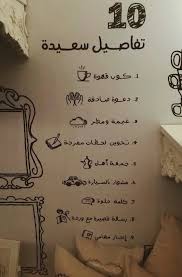 10
تفاصيل سعيدة
1. كوب قهوة
2. دعوة صادقة
3. غيمة ومطر
4. تخزين لحظات مفرحة
5. جمعة أهل
6. مشوار بالسيارة
7. كلمة حلوة
8. رسالة قصيرة مع وردة
9. إنجاز شخصي